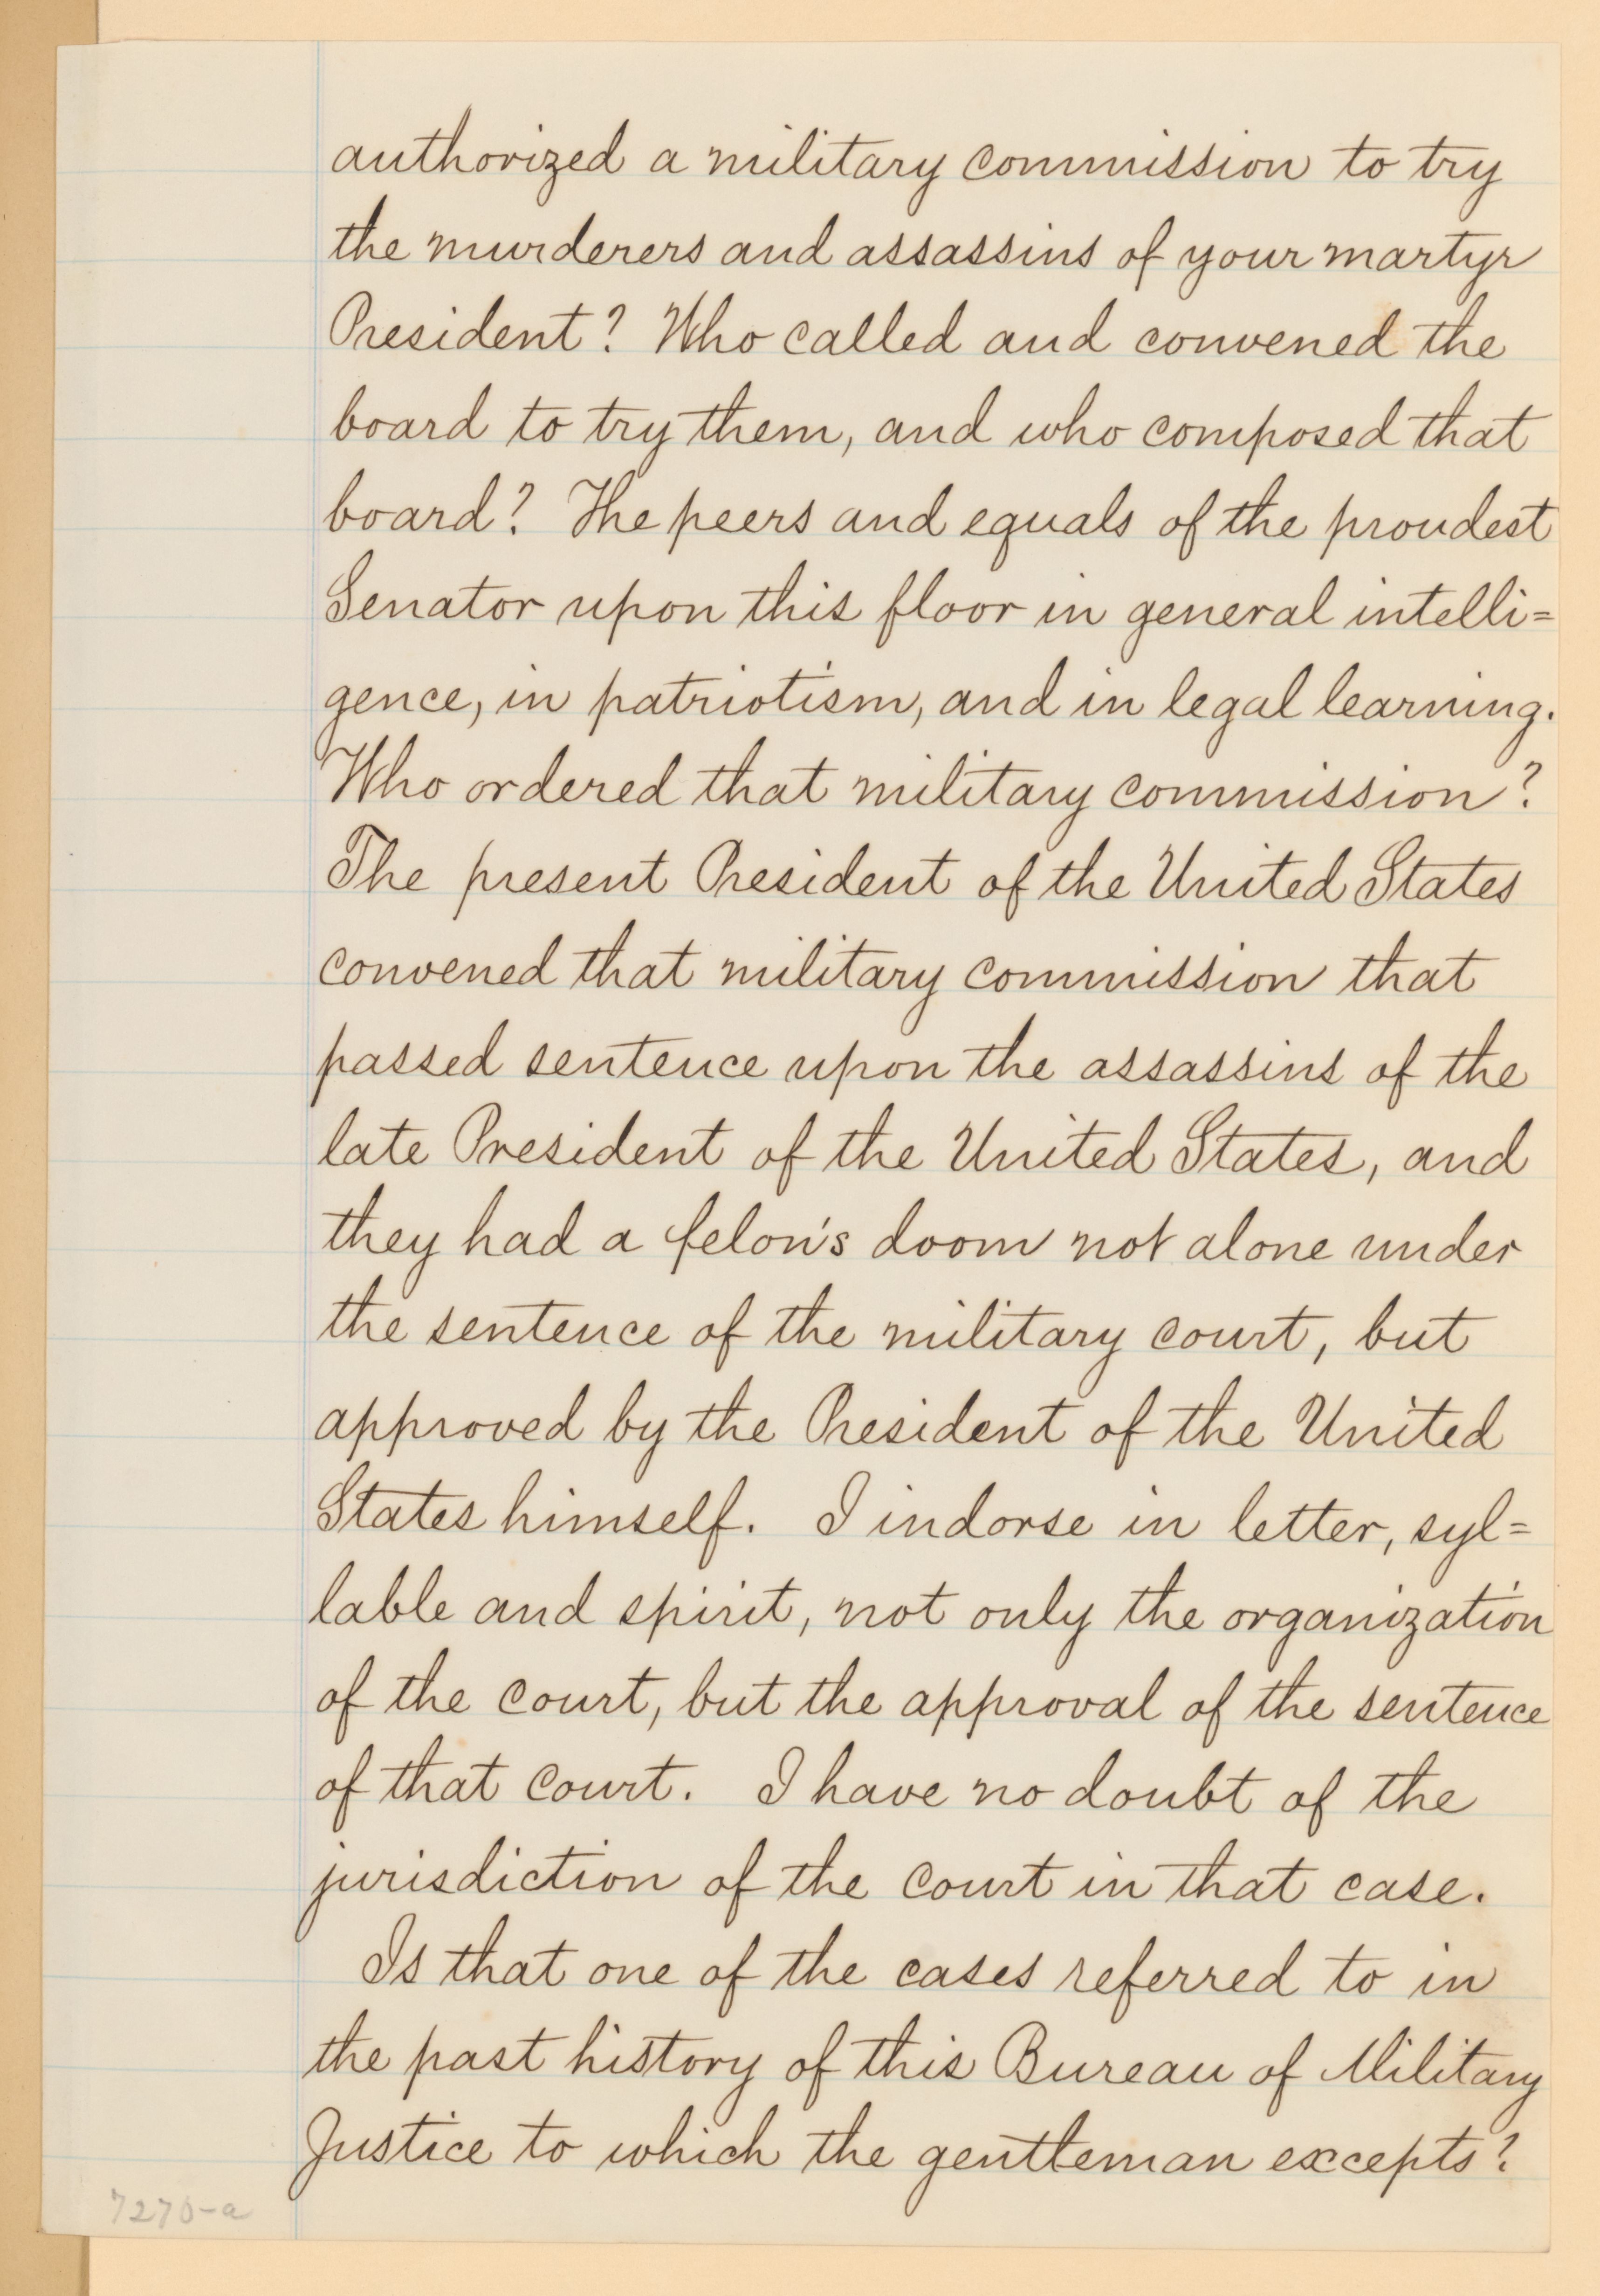 authorized a military commission to try
the murderers and assassins of your martyr
President? Who called and convened the
board to try them, and who composed that
board? The peers and equals of the proudest
Senator upon this floor in general intelli=
gence, in patriotism, and in legal learning.
Who ordered that military commission?
The present President of the United States
convened that military commission that
passed sentence upon the assassins of the
late President of the United States, and
they had a felon's doom not alone under
the sentence of the military court, but
approved by the President of the United
States himself. I indorse in letter, syl=
lable and spirit, not only the organization
of the court, but the approval of the sentence
of that court. I have no doubt of the
jurisdiction of the court in that case.
Is that one of the cases referred to in
the past history of this Bureau of Military
Justice to which the gentleman excepts?
7270-a